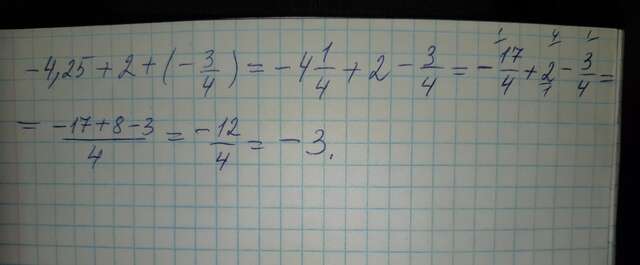 -4,25 + 2 + (-3/4) = -4 1/4 + 2 - 3/4 = -17/4 + 2/1 - 3/4 =
= (-17+8-3)/4 = -12/4 = -3.